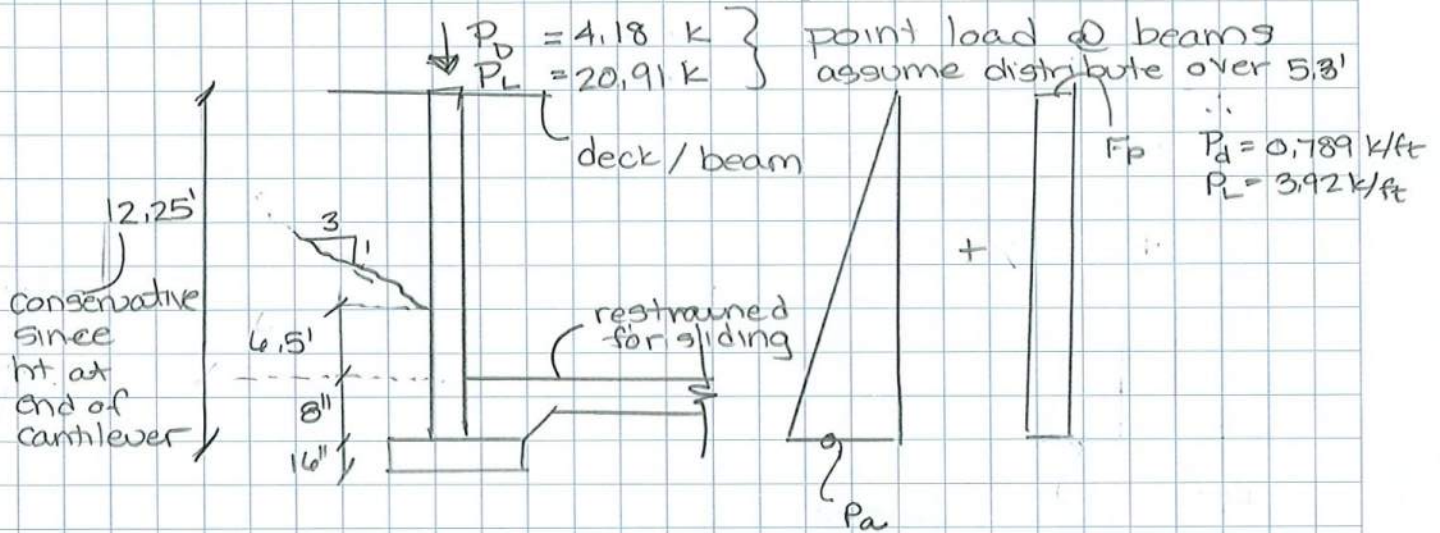 P_D = 4.18 k } point load @ beams
P_L = 20.91 k } assume distribute over 5.3'
∴
deck / beam
Fp
P_d = 0.789 k/ft
P_L = 3.92 k/ft
12.25'
3
1
+
conservative
since
ht at
end of
cantilever
6.5'
restrained
for sliding
8"
16"
Pa